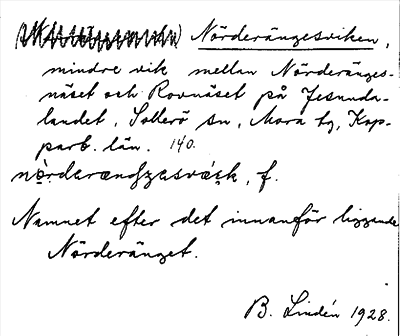 Nörderängesviken,
mindre vik mellan Nörderänges-
näset och Rovnäset på Jesunda-
landet, Sollerö sn, Mora tg, Kop-
parb. län. 140.
f.
Namnet efter det innanför liggande
Nörderänget.
B. Lindén 1928.